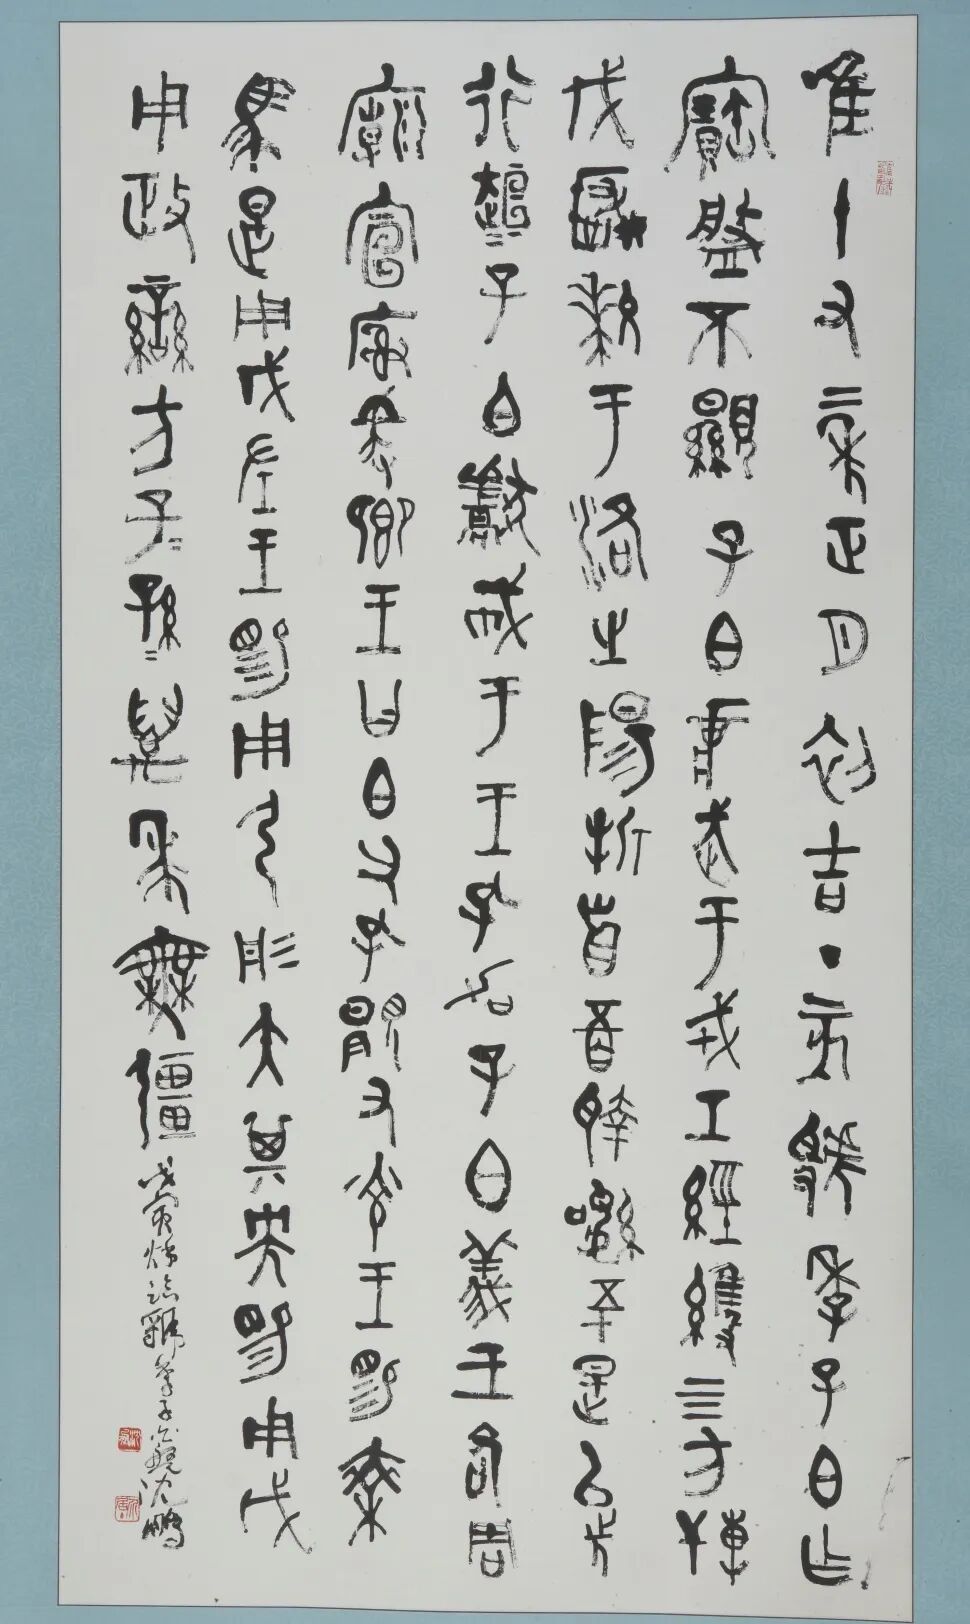 唯十又二年正月初吉丁亥虢季子白乍
寶盤不顯子白壯武于戎工經維四方搏
伐玁狁于洛之陽折首五百執訊五十是以先
行趄=子白獻馘于王孔加子白義王各周
廟宣榭爰鄉王曰白父孔顯又光王賜乘
馬是用戉左王賜用弓彤矢其央賜用戉
用政蠻方子=孫=萬年無疆 戊寅秋临虢季子白盤沈鵬